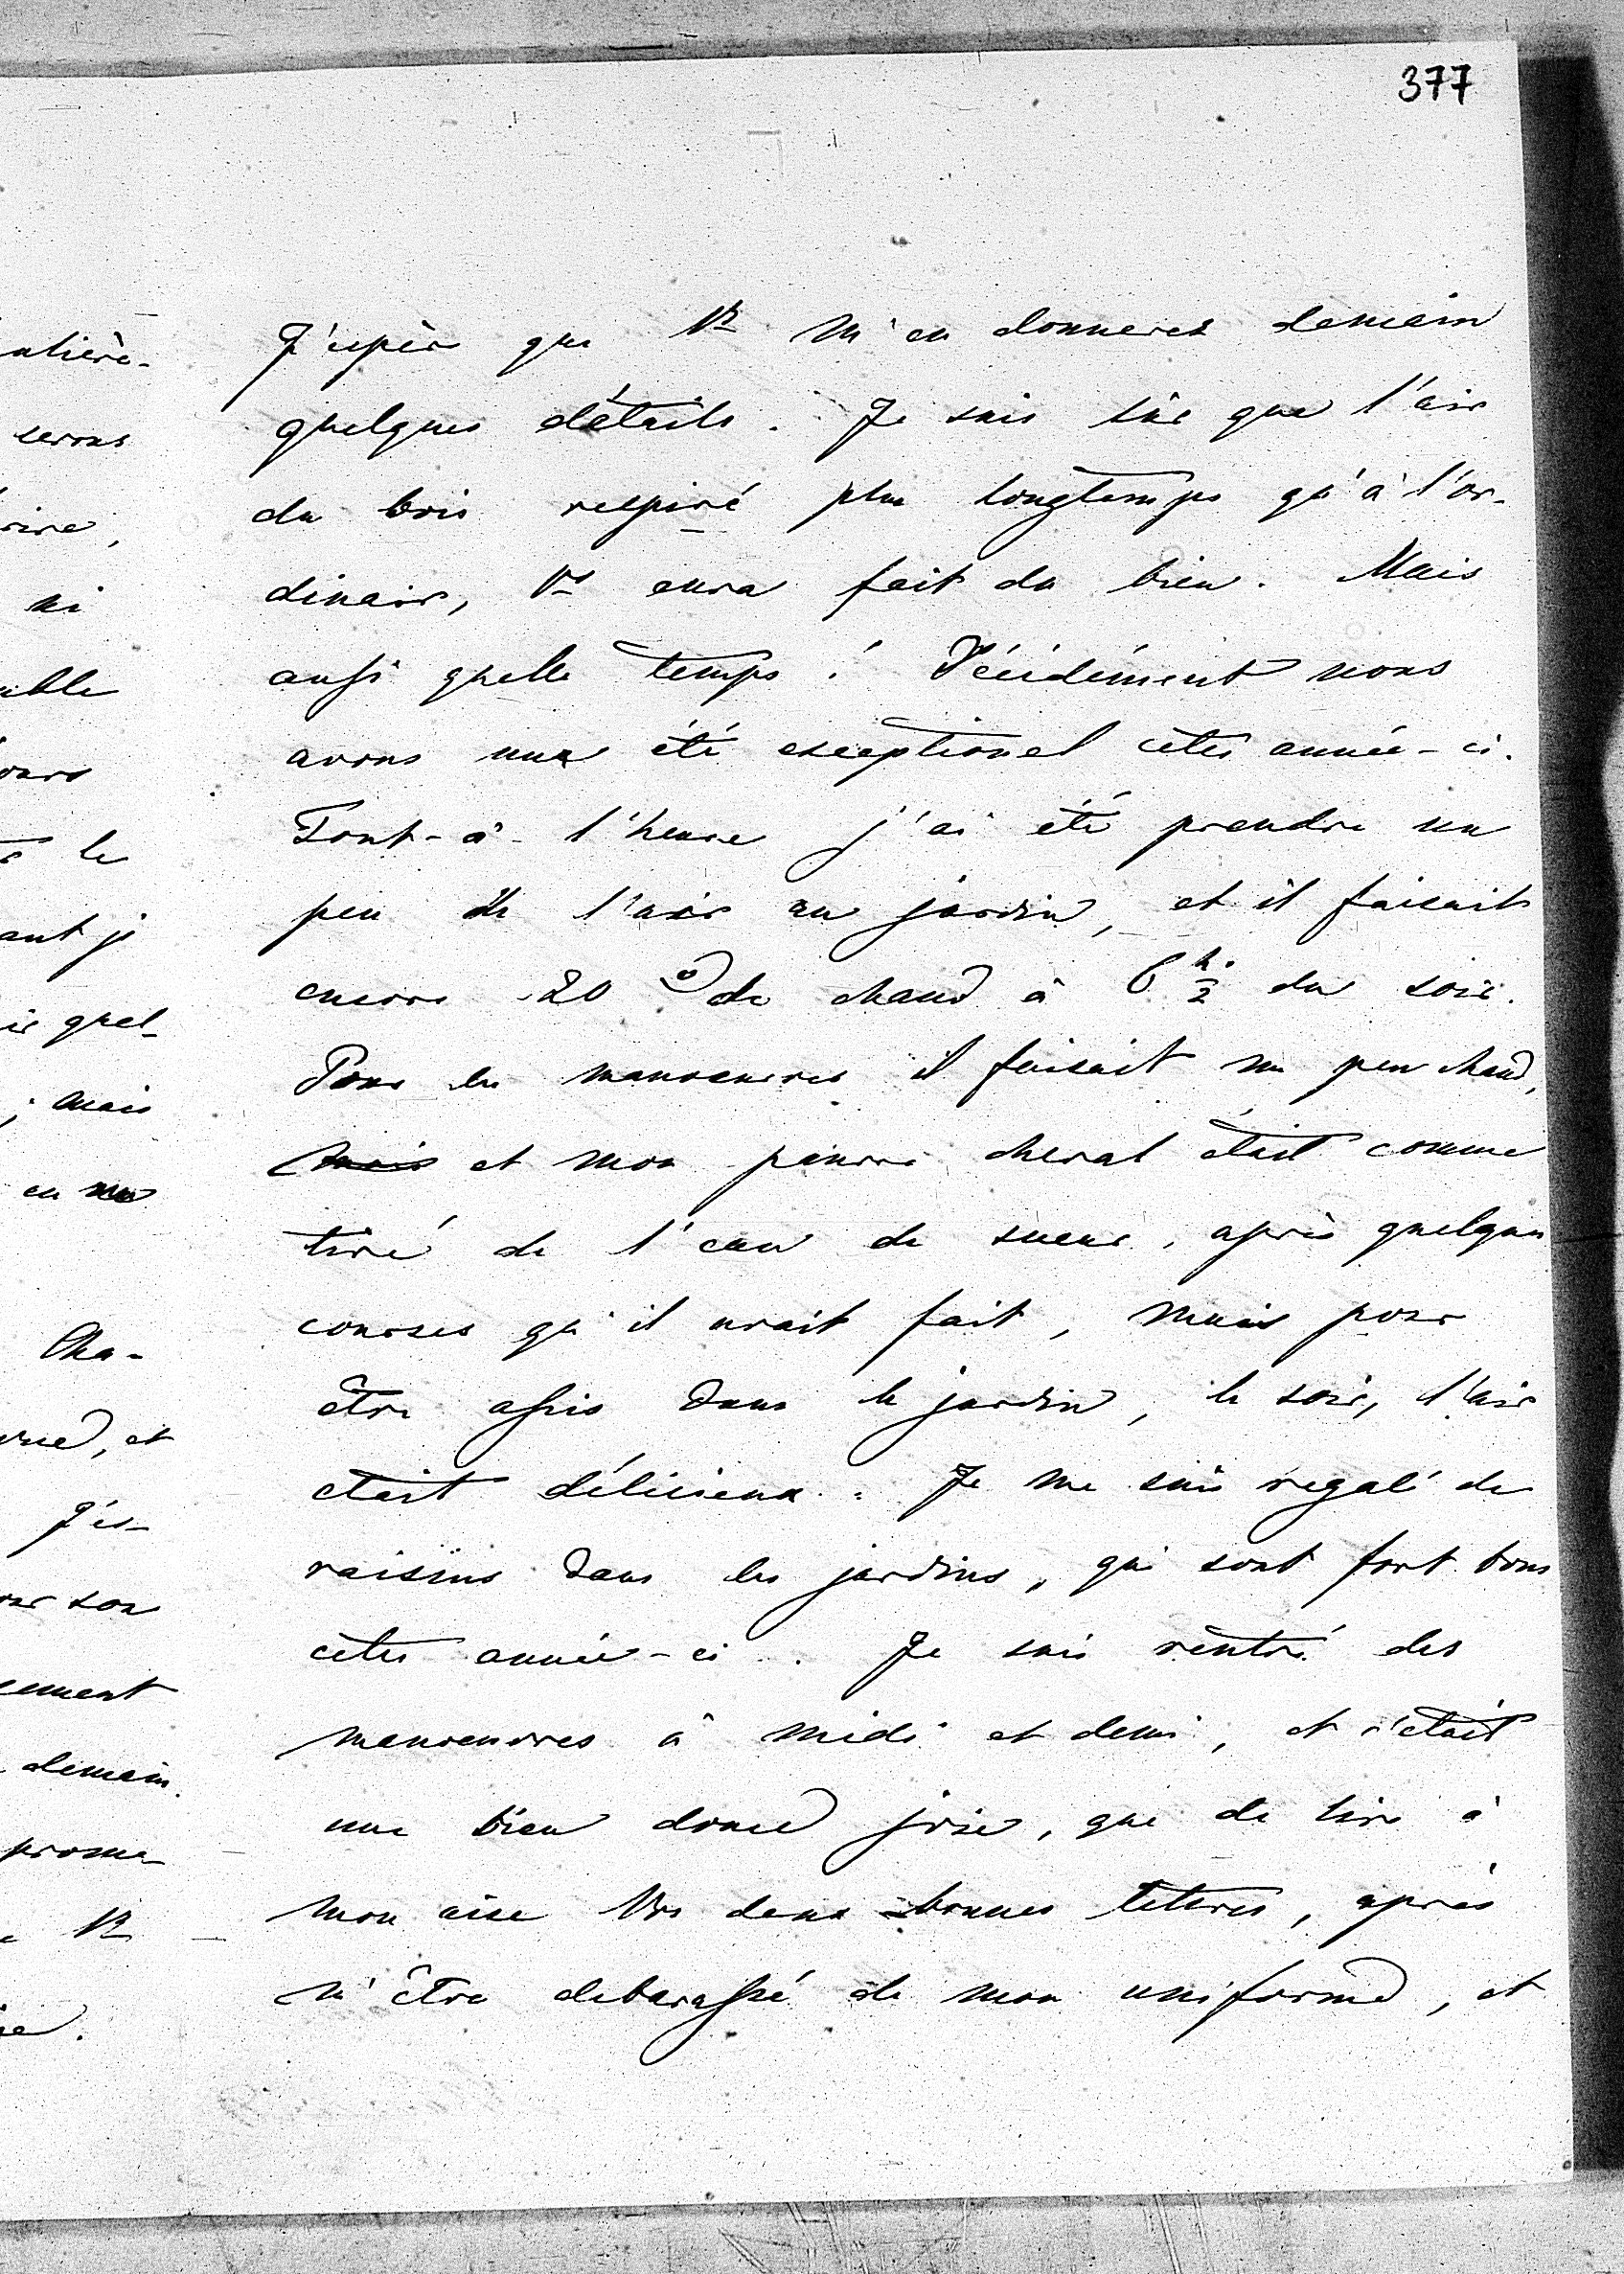 377
J'espère que Vs m'en donnerez demain
quelques détails. Je suis sûr que l'air
du bois respiré plus longtemps qu'à l'or-
dinaire, Vs aura fait du bien. Mais
aussi quelle temps! Décidément nous
avons une été exceptionel cette année-ci.
Tout-à-l'heure j'ai été prendre un
peu de l'air au jardin, et il faisait
encore 20° de chaud à 6 h. du soir.
Pour les manoeuvres il faisait un peu chaud,
mais et mon pauvre cheval était comme
tiré de l'eau de sueur, après quelques
courses qu'il avait fait, mais pour
être assis dans le jardin, le soir, l'air
etait délicieux. Je me suis regalé de
raisins dans les jardins, qui sont fort bons
cette année-ci. Je suis rentré des
manoeuvres à midi et demi, et c'etait
une bien douce joie, que de lire à
mon aise Vos deux bonnes lettres, après
m'être debarassé de mon uniforme, et
ntière-
serons
rire,
ni
able
ours
le
ant je
quel-
; mais
en
Cha-
, et
J'es-
son
ement
demain.
prome-
Vs